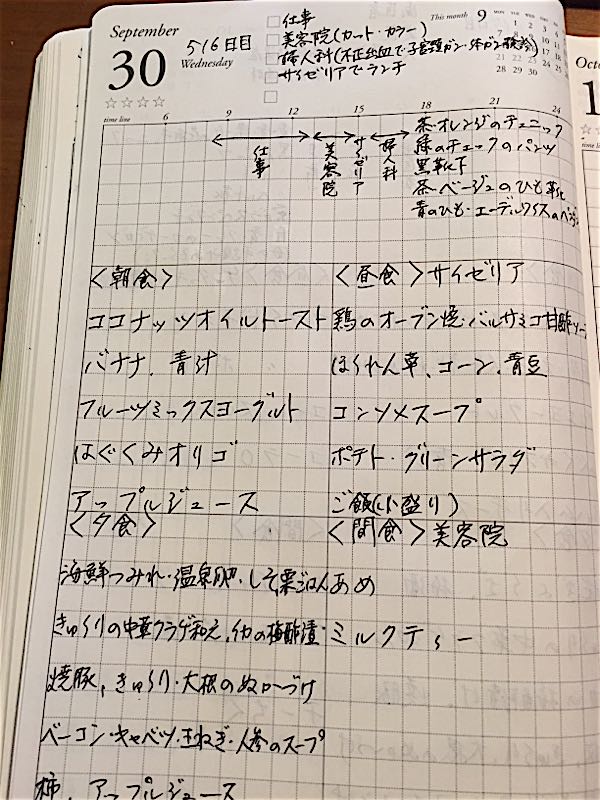 September
30
516日目
Wednesday
This month 9
仕事
美容院(カット・カラー)
婦人科(不正出血で子宮頸ガン・体ガン検診)
サイゼリアでランチ
time line 6 9 12 15 18 21 24
仕事
美容院
サイゼリア
婦人科
茶・オレンジのチュニック
緑のチェックのパンツ
黒靴下
茶・ベージュのひも靴
青のひも・エーデルワイスの
<朝食>
ココナッツオイルトースト
バナナ、青汁
フルーツミックスヨーグルト
はぐくみオリゴ
アップルジュース
<昼食>サイゼリア
鶏のオーブン焼・バルサミコ甘酢ソース
ほうれん草、コーン、青豆
コンソメスープ
ポテト・グリーンサラダ
ご飯(小盛り)
<夕食>
海鮮つみれ・温泉卵、しそ栗ごはん
きゅうりの中華クラゲ和え、イカの梅酢漬
焼豚、きゅうり・大根のぬかづけ
ベーコン・キャベツ・玉ねぎ・人参のスープ
柿、アップルジュース
<間食>美容院
あめ
ミルクティー